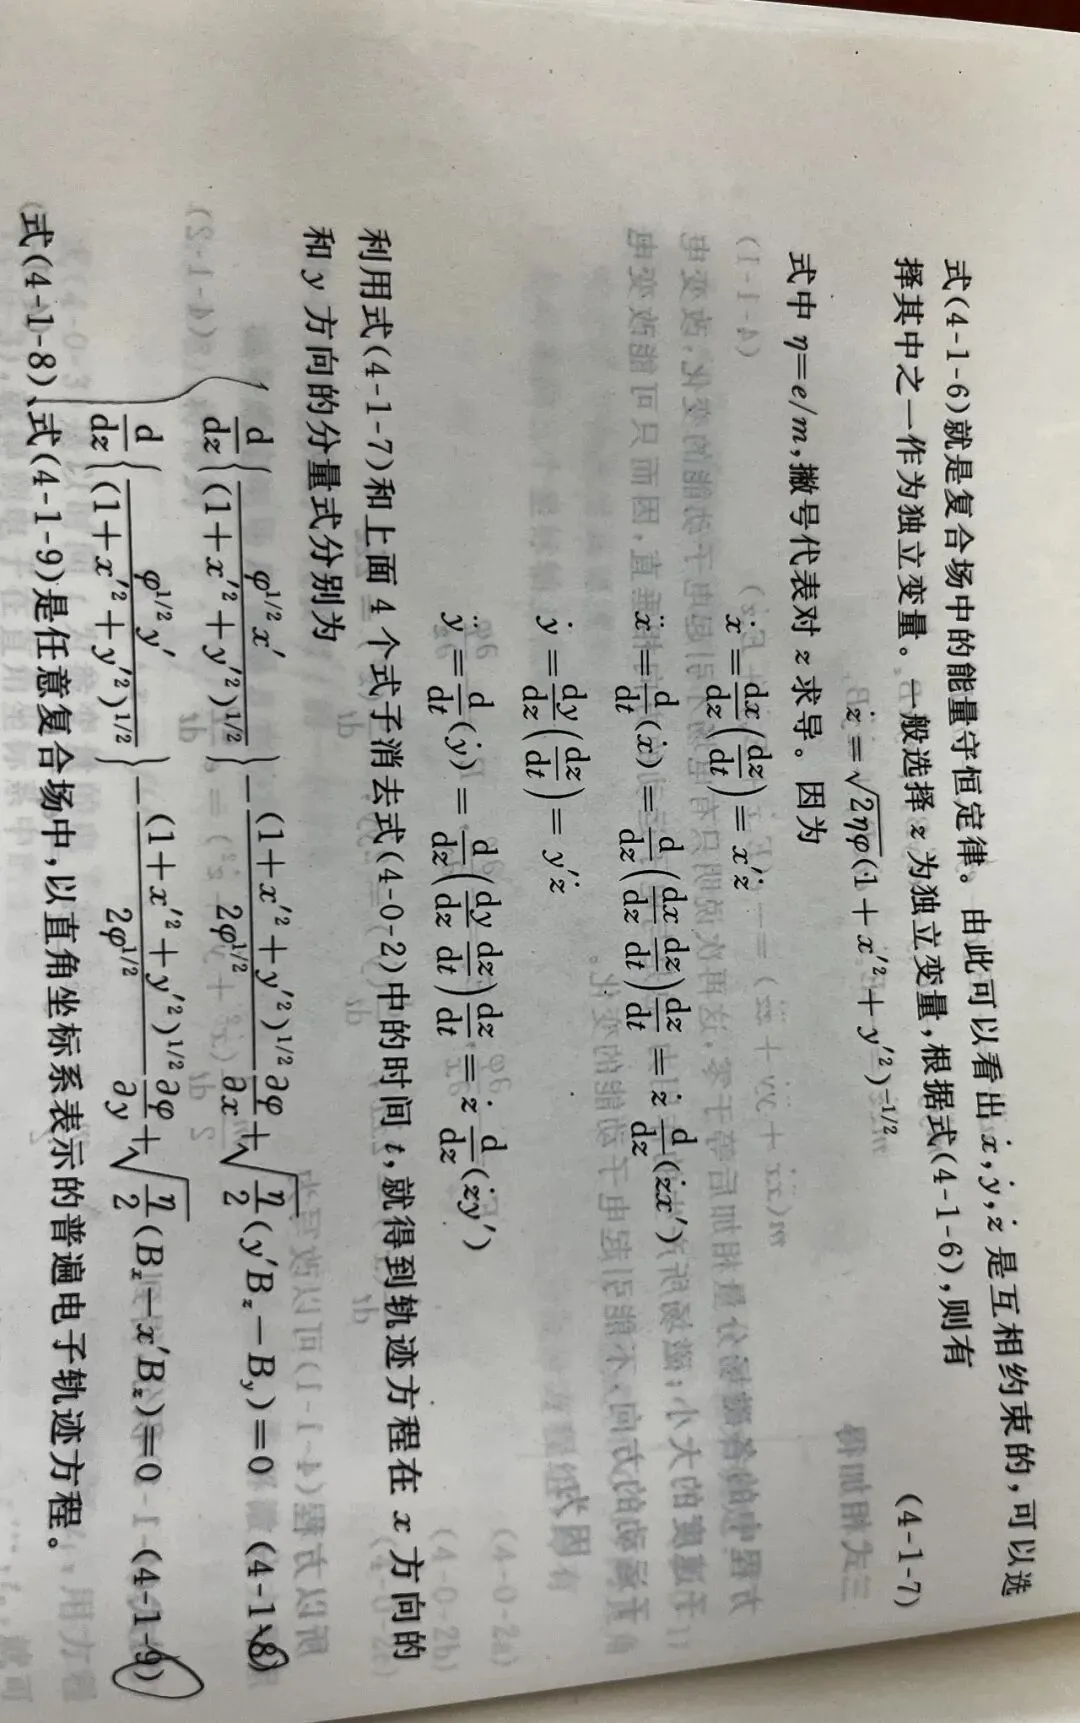 式(4-1-6)就是复合场中的能量守恒定律。由此可以看出 ẋ,ẏ,ż 是互相约束的,可以选
择其中之一作为独立变量。一般选择 z 为独立变量,根据式(4-1-6),则有
ż=√(2ηφ)(1+x′²+y′²)^(-1/2) (4-1-7)
式中 η=e/m,撇号代表对 z 求导。因为
ẋ=dx/dz(dz/dt)=x′ż
ẍ=d/dt(ẋ)=d/dz(dx/dz dz/dt)dz/dt=ż d/dz(żx′)
ẏ=dy/dz(dz/dt)=y′ż
ÿ=d/dt(ẏ)=d/dz(dy/dz dz/dt)dz/dt=ż d/dz(ży′)
利用式(4-1-7)和上面 4 个式子消去式(4-0-2)中的时间 t,就得到轨迹方程在 x 方向的
和 y 方向的分量式分别为
d/dz{φ^(1/2)x′/(1+x′²+y′²)^(1/2)}-(1+x′²+y′²)^(1/2)/(2φ^(1/2)) ∂φ/∂x+√(η/2)(y′B_z-B_y)=0 (4-1-8)
d/dz{φ^(1/2)y′/(1+x′²+y′²)^(1/2)}-(1+x′²+y′²)^(1/2)/(2φ^(1/2)) ∂φ/∂y+√(η/2)(B_x-x′B_z)=0 (4-1-9)
式(4-1-8)、式(4-1-9)是任意复合场中,以直角坐标系表示的普遍电子轨迹方程。